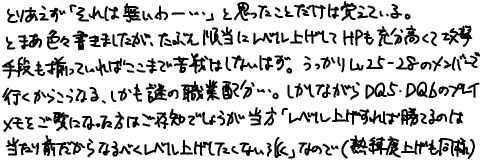 とりあえず「それは無いわー…」と思ったことだけは覚えている。
とまあ色々書きましたが、たぶん順当にレベル上げしてHPも充分高くて攻撃
手段も揃っていればここまで苦戦はしないはず。うっかりLv25-28のメンバーで
行くからこうなる、しかも謎の職業配分…。しかしながらDQ5・DQ6のプレイ
メモをご覧になった方はご存知でしょうが当方「レベル上げすれば勝てるのは
当たり前だからなるべくレベル上げしたくない派」なので(熟練度上げも同様)